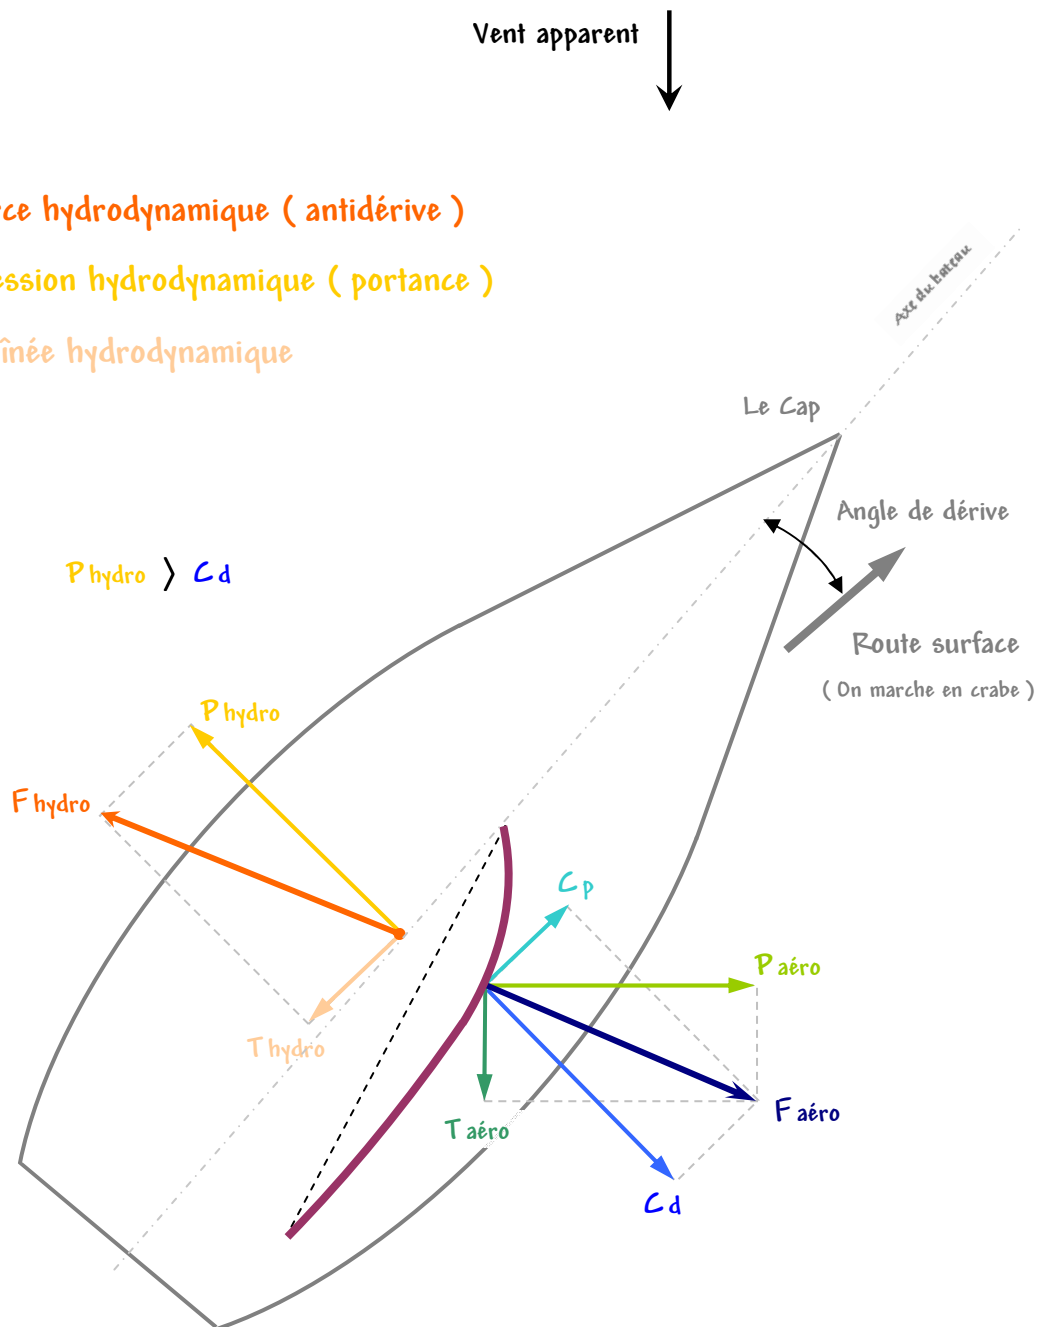 Vent apparent
rce hydrodynamique ( antidérive )
ession hydrodynamique ( portance )
înée hydrodynamique
Axe du bateau
Le Cap
Angle de dérive
P hydro > Cd
Route surface
( On marche en crabe )
P hydro
F hydro
Cp
P aéro
T hydro
F aéro
T aéro
Cd